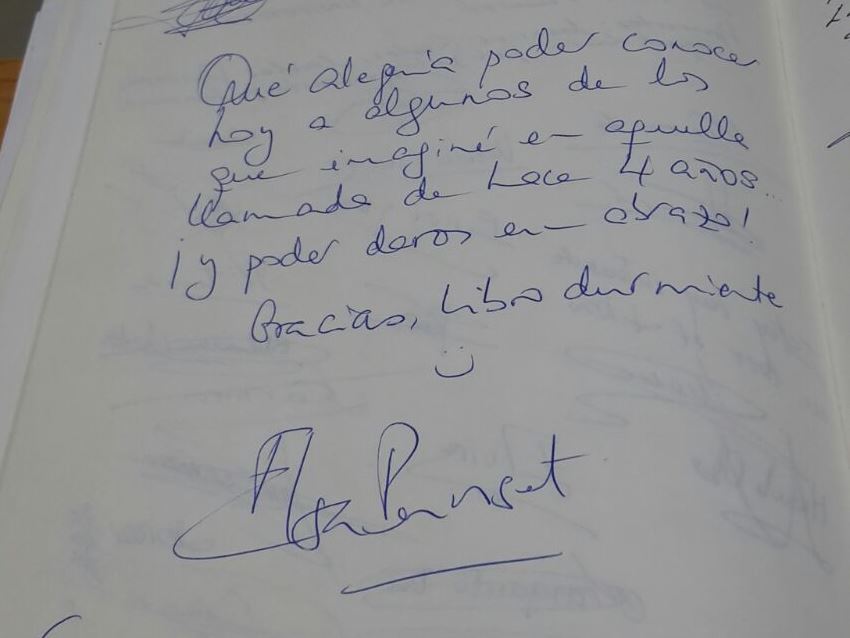 Qué alegría poder conocer
hoy a algunos de los
que imaginé en aquella
llamada de hace 4 años...
¡y poder daros un abrazo!
Gracias, Libro durmiente
Elsa Punset